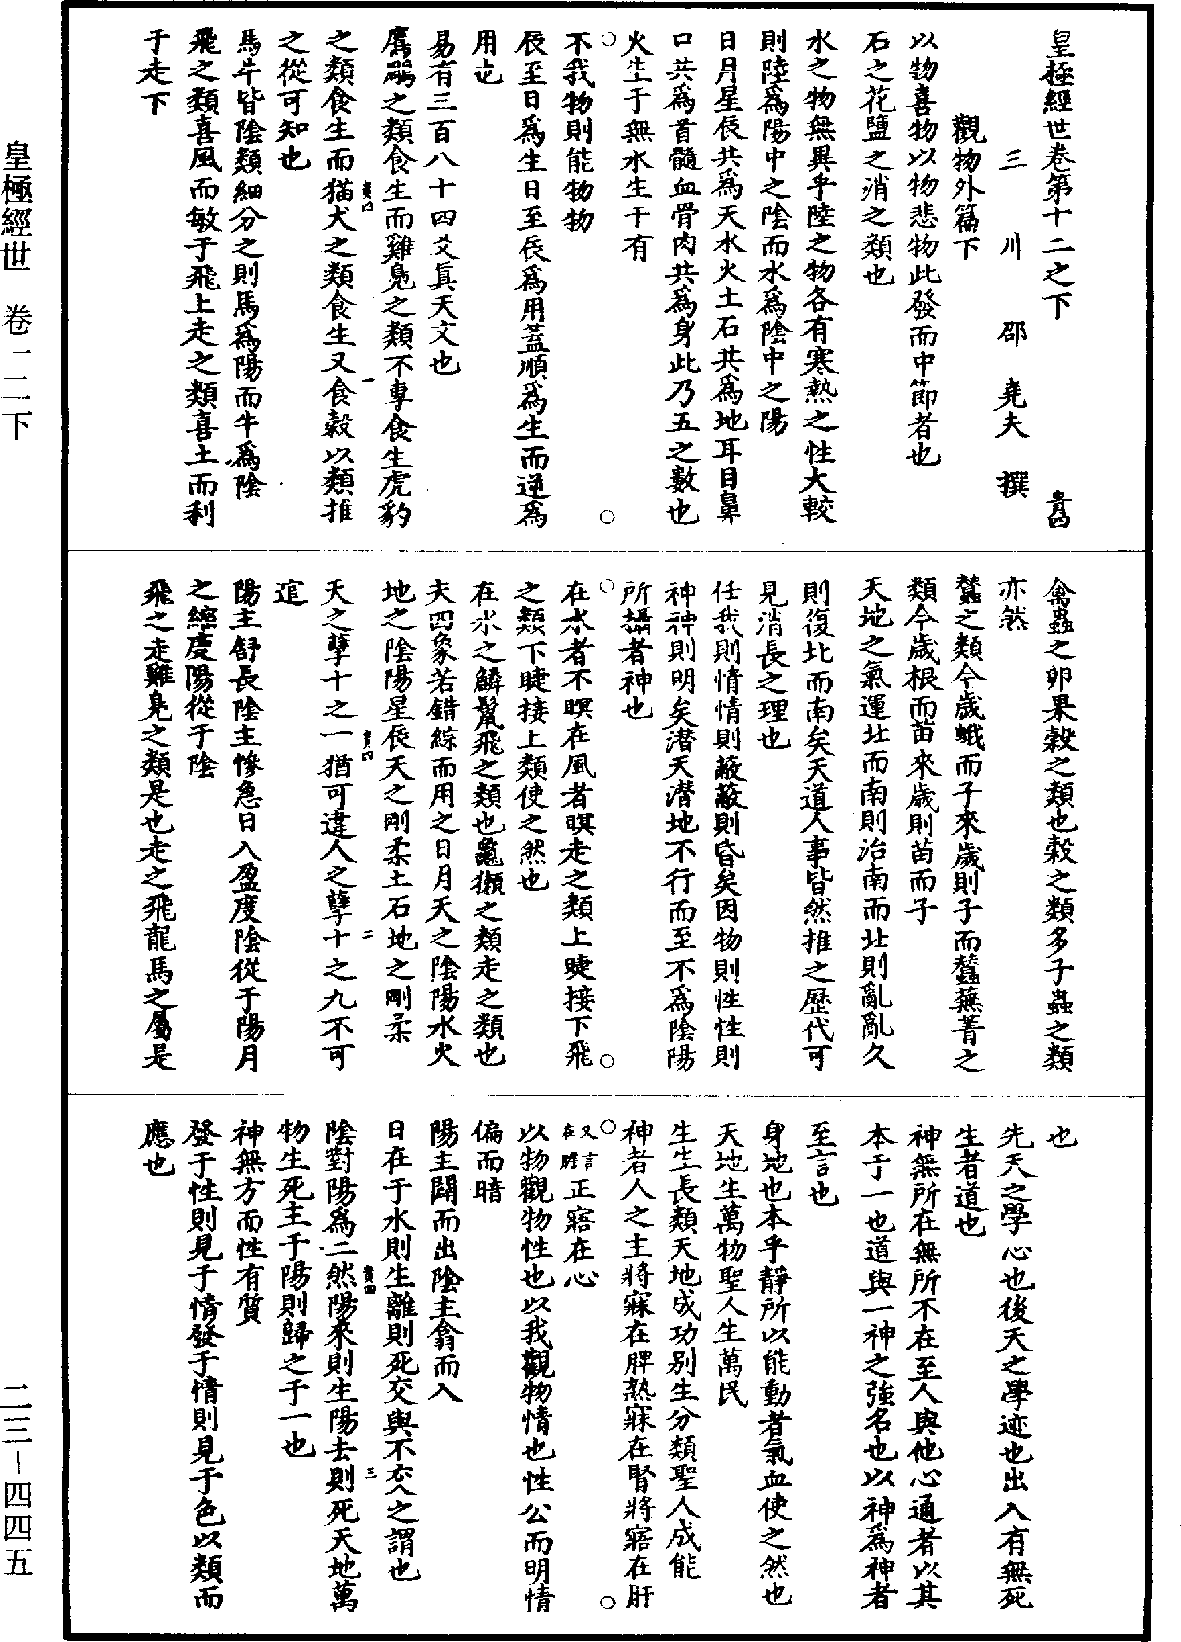 皇極經世卷第十二之下　貴四
三川邵堯夫撰
觀物外篇下
以物喜物以物悲物此發而中節者也
石之花鹽之消之類也
水之物無異乎陸之物各有寒熱之性大較
則陸爲陽中之陰而水爲陰中之陽
日月星辰共爲天水火土石共爲地耳目鼻
口共爲首髓血骨肉共爲身此乃五之數也
火生于無水生于有
不我物則能物物
辰至日爲生日至辰爲用蓋順爲生而逆爲
用也
易有三百八十四爻眞天文也
鷹鸇之類食生而雞鳧之類不專食生虎豹
之類食生而猫犬之類食生又食穀以類推
貴四　一
之從可知也
馬牛皆陰類細分之則馬爲陽而牛爲陰
飛之類喜風而敏于飛上走之類喜土而利
于走下
禽蟲之卵果穀之類也穀之類多子蟲之類
亦然
蠶之類今歲蛾而子來歲則子而蠶蕪菁之
類今歲根而苗來歲則苗而子
天地之氣運北而南則治南而北則亂亂久
則復北而南矣天道人事皆然推之歷代可
見消長之理也
任我則情情則蔽蔽則昏矣因物則性性則
神神則明矣潛天潛地不行而至不爲陰陽
所攝者神也
在水者不瞑在風者瞑走之類上睫接下飛
之類下睫接上類使之然也
在水之鱗鬣飛之類也龜獺之類走之類也
夫四象若錯綜而用之日月天之陰陽水火
地之陰陽星辰天之剛柔土石地之剛柔
貴四　二
天之孽十之一猶可違人之孽十之九不可
逭
陽主舒長陰主慘急日入盈度陰從于陽月
之縮度陽從于陰
飛之走雞鳧之類是也走之飛龍馬之屬是
也
先天之學心也後天之學迹也出入有無死
生者道也
神無所在無所不在至人與他心通者以其
本于一也道與一神之強名也以神爲神者
至言也
身地也本乎靜所以能動者氣血使之然也
天地生萬物聖人生萬民
生生長類天地成功別生分類聖人成能
神者人之主將寐在脾熟寐在腎將寤在肝
又言在膽正寤在心
以物觀物性也以我觀物情也性公而明情
偏而暗
陽主闢而出陰主翕而入
日在于水則生離則死交與不交之謂也
貴四　三
陰對陽爲二然陽來則生陽去則死天地萬
物生死主于陽則歸之于一也
神無方而性有質
發于性則見于情發于情則見于色以類而
應也
皇極經世　卷一二下
二三－四四五